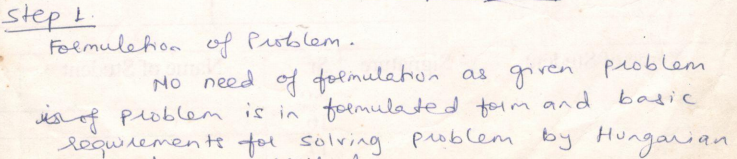 Step 1.
Formulation of Problem.
No need of formulation as given problem
is of problem is in formulated form and basic
requirements for solving problem by Hungarian